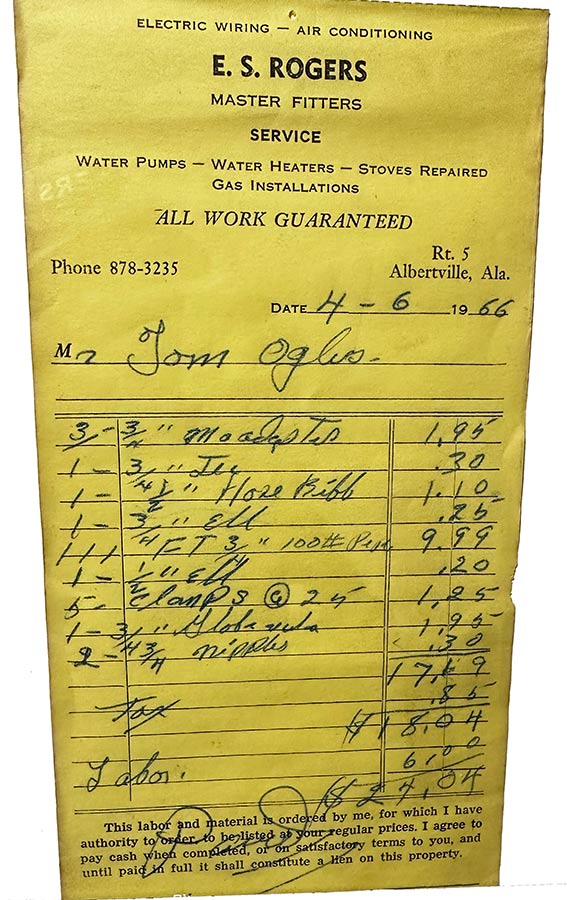 ELECTRIC WIRING — AIR CONDITIONING
E. S. ROGERS
MASTER FITTERS
SERVICE
WATER PUMPS — WATER HEATERS — STOVES REPAIRED
GAS INSTALLATIONS
ALL WORK GUARANTEED
Phone 878-3235
Rt. 5
Albertville, Ala.
DATE 4 - 6 1966
Mr Tom Ogles.
3 - 3/4 " M adapter 1.95
1 - 3/4 " Tee .30
1 - 1/2 " Hose Bibb 1.10
1 - 3/4 " Ell .25
111 FT 3/4 " 100# Pipe 9.99
1 - 1/2 " Ell .20
5 - Clamps @ 25 1.25
1 - 3/4 " Globe 1.95
2 - 3/4 nipples .30
17.19
Tax .85
$18.04
Labor. 6.00
$24.04
This labor and material is ordered by me, for which I have
authority to order, to be listed at your regular prices. I agree to
pay cash when completed, or on satisfactory terms to you, and
until paid in full it shall constitute a lien on this property.
Paid